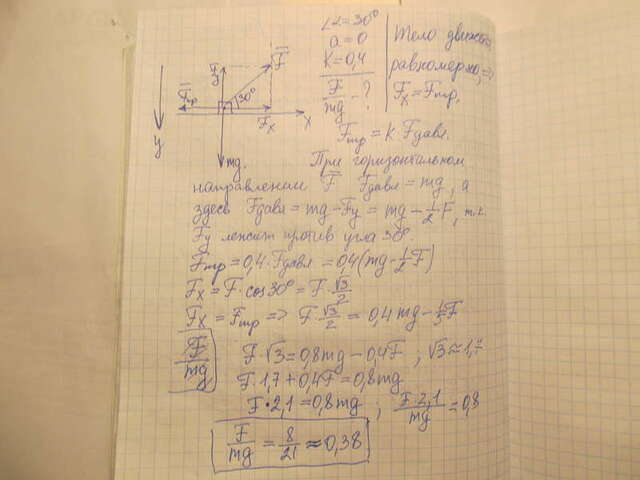 ∠α=30°
a=0
K=0,4
F/mg - ?
Тело движется
равномерно, =>
Fx = Fтр.
Fy
F
Fтр
30°
Fx
X
y
mg.
Fтр = K·Fдавл.
При горизонтальном
направлении F Fдавл = mg, а
здесь Fдавл = mg-Fy = mg-1/2F, т.к.
Fy лежит против угла 30°
Fтр=0,4·Fдавл = 0,4(mg-1/2F)
Fx = F·cos30° = F·√3/2
Fx = Fтр => F·√3/2 = 0,4mg-1/5F
F/mg
F·√3=0,8mg-0,4F ; √3≈1,7
F·1,7+0,4F=0,8mg
F·2,1=0,8mg ; F·2,1/mg=0,8
F/mg = 8/21 ≈ 0,38